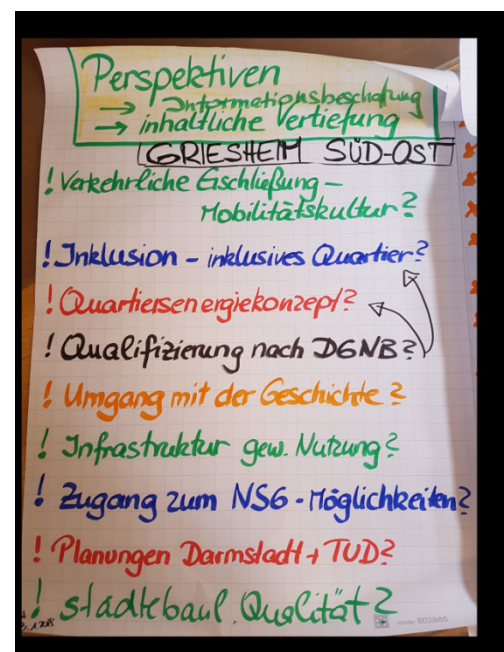 Perspektiven
→ Informationsbeschafung
→ inhaltliche Vertiefung
GRIESHEIM SÜD-OST
! Verkehrliche Eschließung –
Mobilitätskultur?
! Inklusion – inklusives Quartier?
! Quartiersenergiekonzept?
! Qualifizierung nach DGNB?
! Umgang mit der Geschichte?
! Infrastruktur gew. Nutzung?
! Zugang zum NSG - Möglichkeiten?
! Planungen Darmstadt + TUD?
! städtebaul. Qualität?